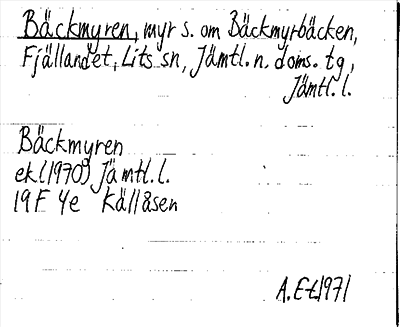 Bäckmyren, myr s. om Bäckmyrbäcken,
Fjällandet, Lits sn, Jämtl. n. doms. tg,
Jämtl. l.
Bäckmyren
ek (1970) Jämtl. l.
19F 4e Källåsen
A. E-t 1971